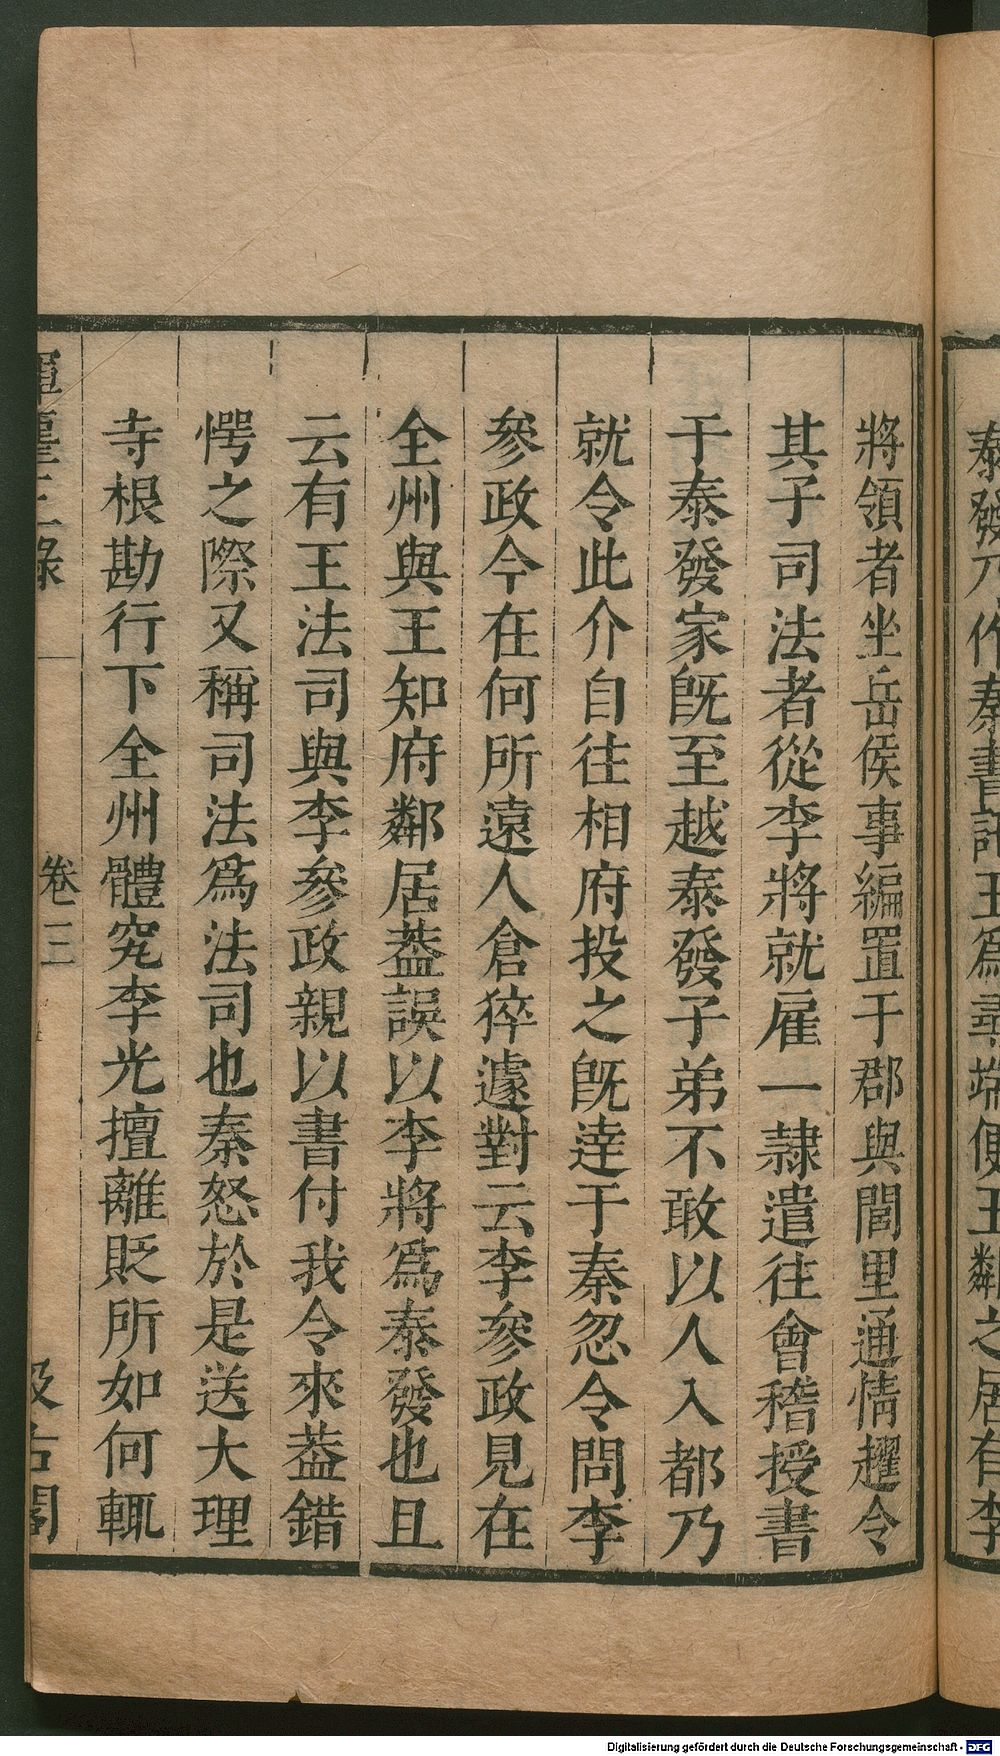 泰發乃作秦書託王爲尋端便王鄰之居有李
將領者坐岳侯事編置于郡與閭里通情趯令
其子司法者從李將就雇一隷遣往會稽授書
于泰發家旣至越泰發子弟不敢以人入都乃
就令此介自往相府投之旣達于秦忽令問李
參政今在何所遠人倉猝遽對云李參政見在
全州與王知府鄰居葢誤以李將爲泰發也且
云有王法司與李參政親以書付我令來葢錯
愕之際又稱司法爲法司也秦怒於是送大理
寺根勘行下全州體究李光擅離貶所如何輒
揮麈三錄
卷三
汲古閣
Digitalisierung gefördert durch die Deutsche Forschungsgemeinschaft - DFG